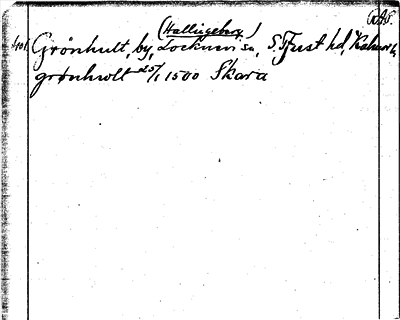 (Hallingeberg)
Grönhult, by, Locknevi sn, S. Tjust hd, Kalmar l.
grönhwlt 25/1 1500 Skara